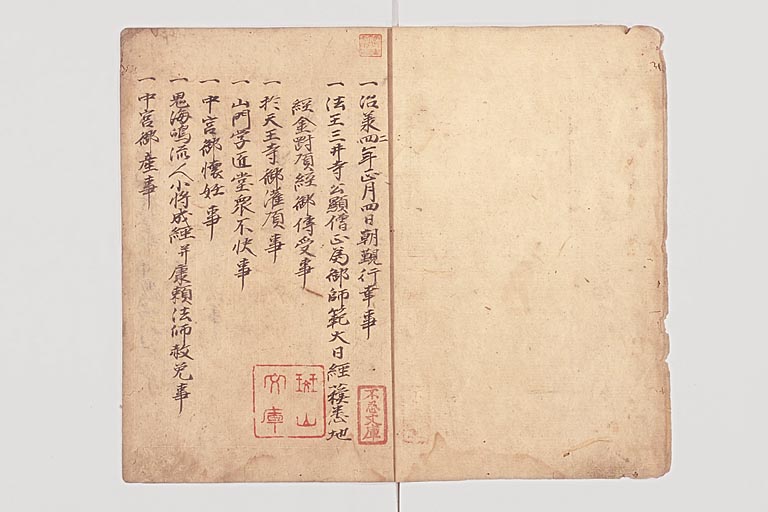 一 治承四年正月四日朝覲行幸事
二
一 法王三井寺公顕僧正為御師範大日経蘇悉地
経金剛頂経御傳受事
一 於天王寺御灌頂事
一 山門学匠堂衆不快事
一 中宮御懐妊事
一 鬼海嶋流人少将成経并康頼法師赦免事
一 中宮御産事
不忍文庫
斑山文庫